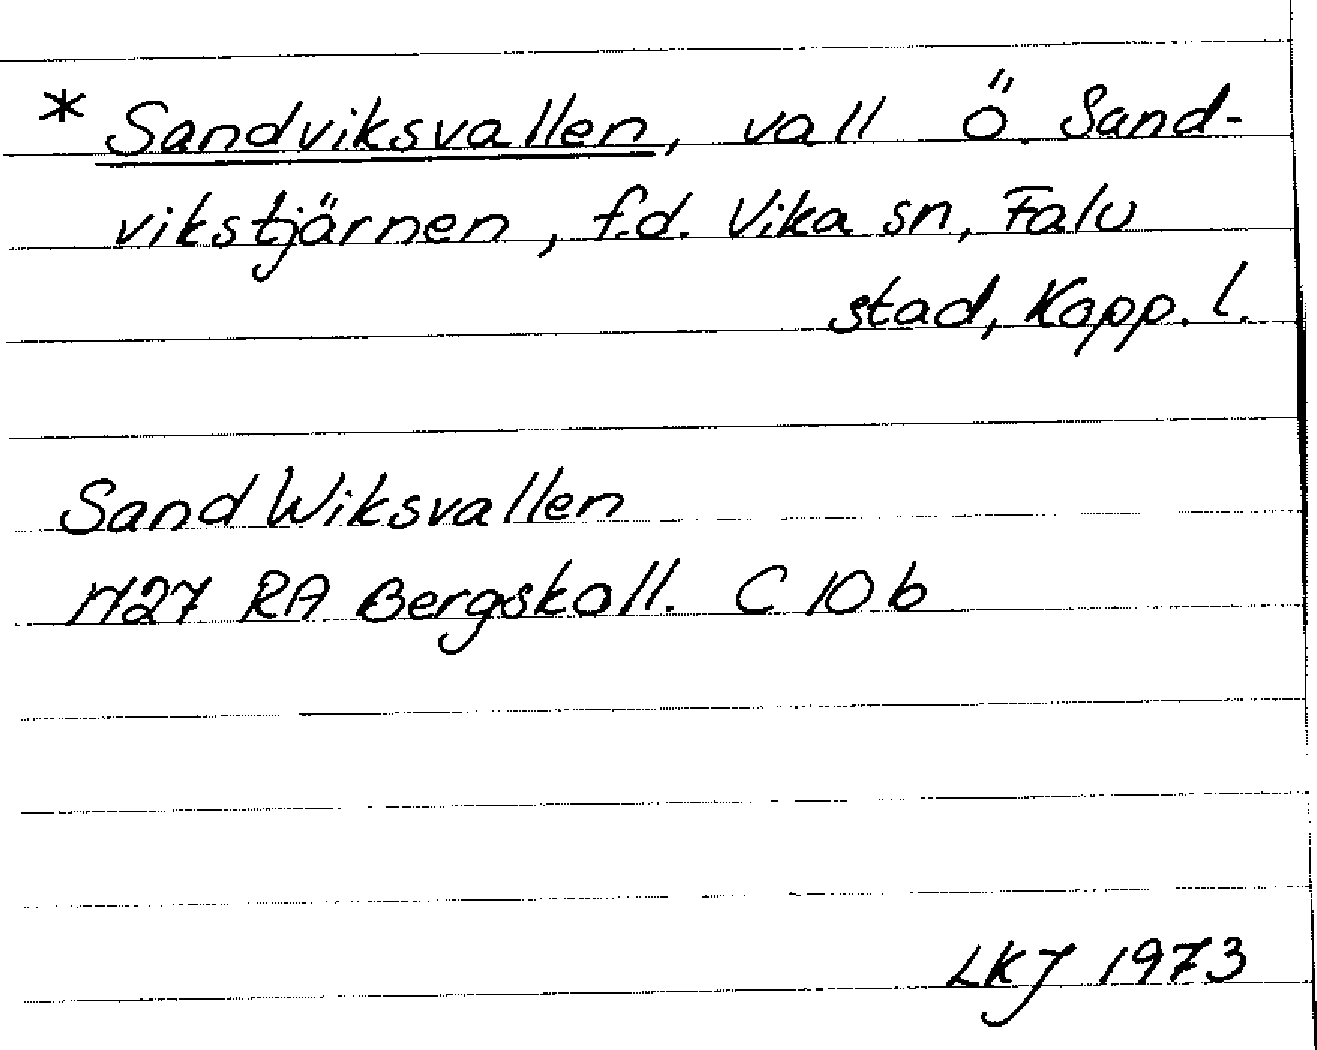 * Sandviksvallen, vall ö Sand-
vikstjärnen, f.d. Vika sn, Falu
stad, Kopp. l.
Sand Wiksvallen
1727 RA Bergskoll. C 10 b
LKJ 1973